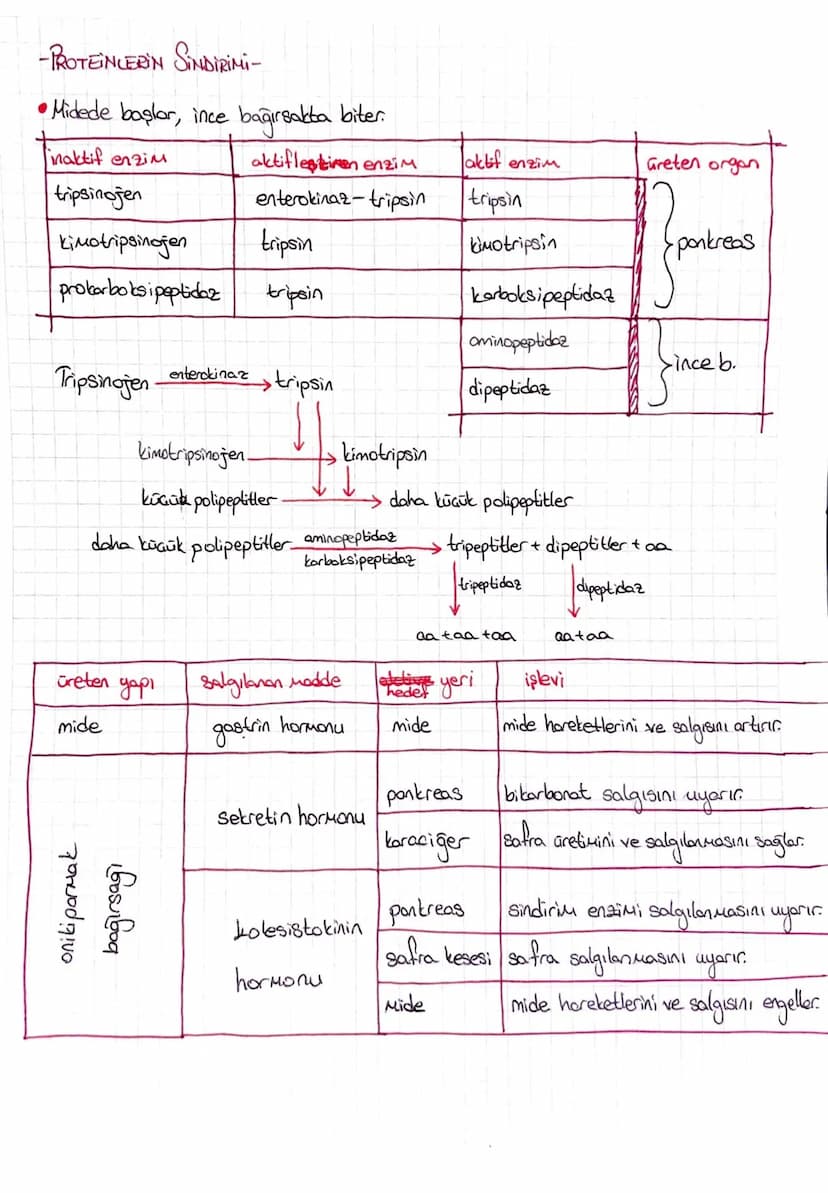 -PROTEİNLERİN SİNDİRİMİ-
• Midede başlar, ince bağırsakta biter.
inaktif enzim aktifleştiren enzim aktif enzim üreten organ
tripsinojen enterokinaz-tripsin tripsin
kimotripsinojen tripsin kimotripsin pankreas
prokarboksipeptidaz tripsin karboksipeptidaz
aminopeptidaz
ince b.
dipeptidaz
Tripsinojen enterokinaz tripsin
kimotripsinojen kimotripsin
küçük polipeptitler daha küçük polipeptitler
daha küçük polipeptitler aminopeptidaz karboksipeptidaz tripeptitler + dipeptitler + aa
tripeptidaz dipeptidaz
aa + aa + aa aa + aa
üreten yapı salgılanan madde hedef yeri işlevi
mide gastrin hormonu mide mide hareketlerini ve salgısını artırır.
onikiparmak bağırsağı
sekretin hormonu
pankreas bikarbonat salgısını uyarır.
karaciğer safra üretimini ve salgılanmasını sağlar.
kolesistokinin
hormonu
pankreas sindirim enzimi salgılanmasını uyarır.
safra kesesi safra salgılanmasını uyarır.
mide mide hareketlerini ve salgısını engeller.